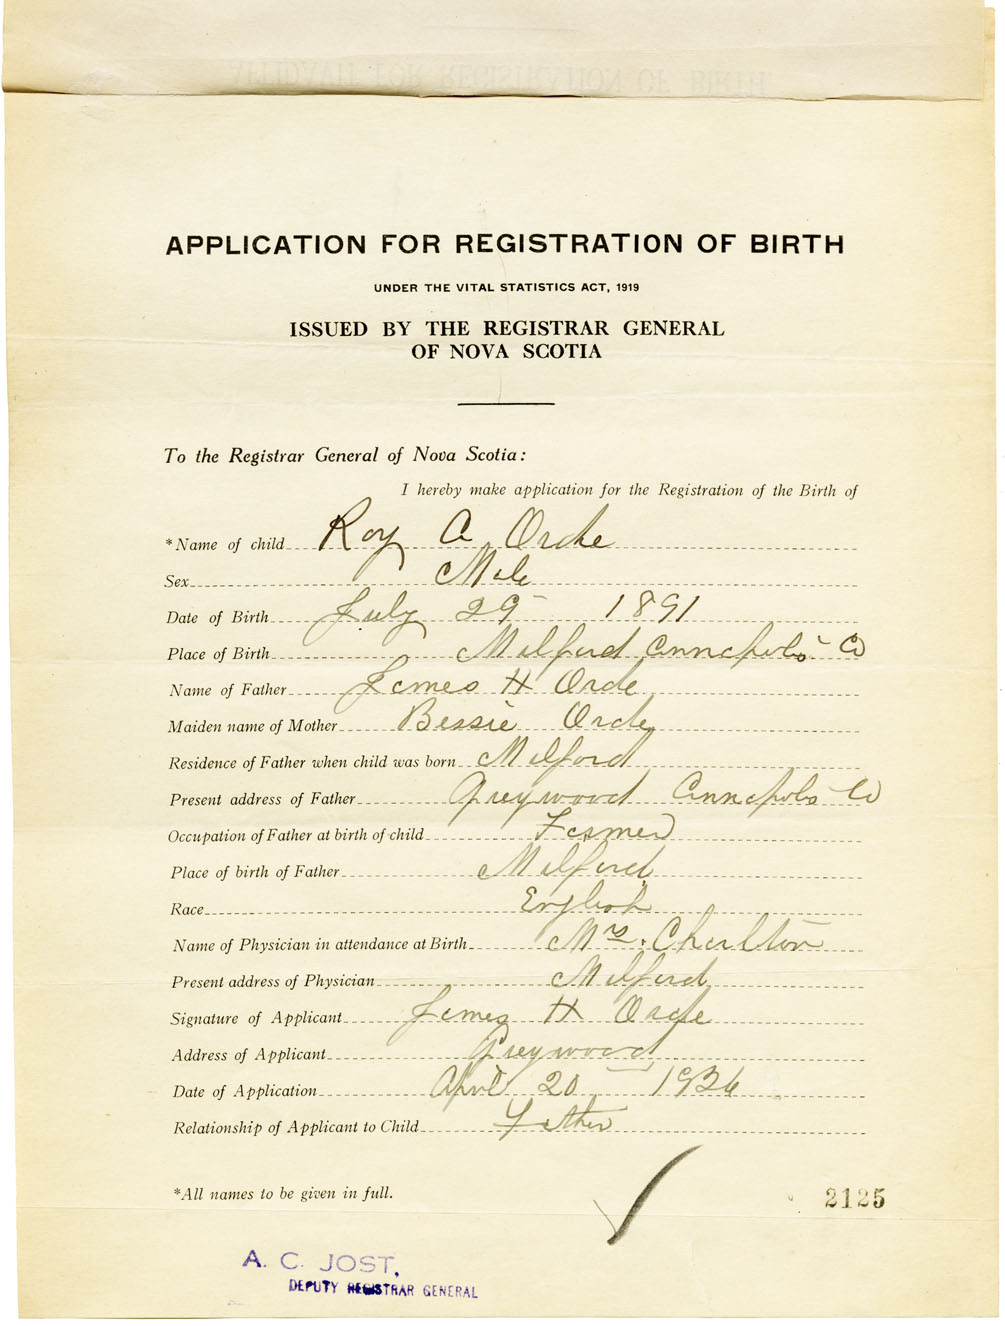 APPLICATION FOR REGISTRATION OF BIRTH
UNDER THE VITAL STATISTICS ACT, 1919
ISSUED BY THE REGISTRAR GENERAL
OF NOVA SCOTIA
To the Registrar General of Nova Scotia:
I hereby make application for the Registration of the Birth of
*Name of child Roy A Orde
Sex Male
Date of Birth July 29 1891
Place of Birth Milford Annapolis Co
Name of Father James H Orde
Maiden name of Mother Bessie Orde
Residence of Father when child was born Milford
Present address of Father Greywood Annapolis Co
Occupation of Father at birth of child Farmer
Place of birth of Father Milford
Race English
Name of Physician in attendance at Birth Mrs. Charlton
Present address of Physician Milford
Signature of Applicant James H Orde
Address of Applicant Greywood
Date of Application April 20 1926
Relationship of Applicant to Child Father
*All names to be given in full.
2125
A. C. JOST,
DEPUTY REGISTRAR GENERAL